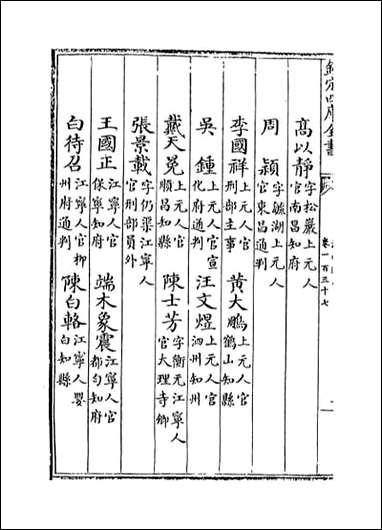 欽定四庫全書
卷一百三十七
高以靜字松巖上元人官南昌知府
周頴字毓湖上元人官東昌通判
李國祥上元人官刑部主事 黃大鵬上元人官鶴山知縣
吳鍾上元人官宣化府通判 汪文煜上元人官泗州知州
戴天覓上元人官順昌知縣 陳士芳字衡元江寧人官大理寺卿
張景載字仍渠江寧人官刑部員外
王國正江寧人官保寧知府 端木象震江寧人官都勻知府
白待召江寧人官柳州府通判 陳白輅江寧人嬰白知縣